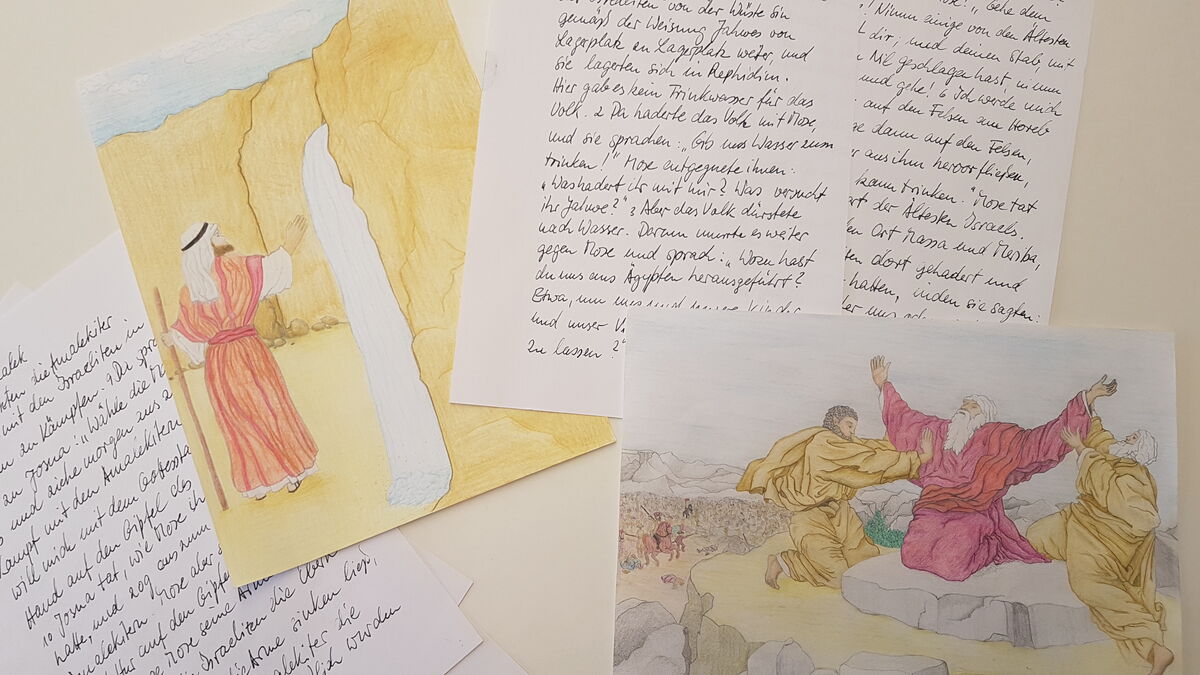 der Israeliten von der Wüste Sin
gemäß der Weisung Jahwes von
Lagerplatz zu Lagerplatz weiter, und
sie lagerten sich in Rephidim.
Hier gab es kein Trinkwasser für das
Volk. 2 Da haderte das Volk mit Mose,
und sie sprachen: „Gib uns Wasser zum
trinken!" Mose entgegnete ihnen:
„Was hadert ihr mit mir? Was versucht
ihr Jahwe?" 3 Aber das Volk dürstete
nach Wasser. Darum murrte es weiter
gegen Mose und sprach: „Wozu hast
du uns aus Ägypten herausgeführt?
Etwa, um uns und unsere Kinder
und unser V
zu lassen?"
„Gehe dem
! Nimm einige von den Ältesten
dir; und deinen Stab, mit
Nil geschlagen hast, nimm
und gehe! 6 Ich werde mich
auf den Felsen am Horeb
dann auf den Felsen,
aus ihm hervorfließen,
kann trinken." Mose tat
der Ältesten Israels.
Ort Massa und Meriba,
dort gehadert und
hatten, indem sie sagten:
die Amalekiter
mit den Israeliten in
zu kämpfen. 9 Da spra
zu Josua: „Wähle die M
und ziehe morgen aus z
Kampf mit den Amalekiten
will mich mit dem Gottessta
Hand auf den Gipfel des
10 Josua tat, wie Mose ih
hatte, und zog aus zum
Amalekitern. Mose aber
Hur auf den Gipfe
Mose seine Arme
Israeliten die Oberh
die Arme sinken ließ,
Amalekiter die